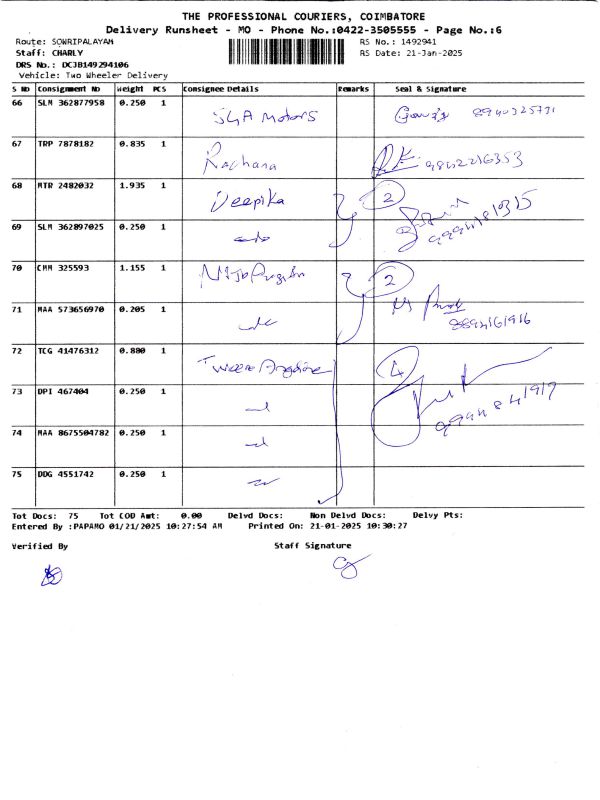 THE PROFESSIONAL COURIERS, COIMBATORE
Delivery Runsheet - MO - Phone No.:0422-3505555 - Page No.:6
Route: SOWRIPALAYAM RS No.: 1492941
Staff: CHARLY RS Date: 21-Jan-2025
DRS No.: DCJB149294106
Vehicle: Two Wheeler Delivery
S No Consignment No Weight PCS Consignee Details Remarks Seal & Signature
66 SLM 362877958 0.250 1 SGA Motors
67 TRP 7878182 0.835 1 Rachana 9842216353
68 MTR 2482032 1.935 1 Deepika 2
69 SLM 362897025 0.250 1
70 CMM 325593 1.155 1 2
71 MAA 573656970 0.205 1
72 TCG 41476312 0.880 1 4
73 DPI 467404 0.250 1
74 MAA 8675504782 0.250 1
75 DDG 4551742 0.250 1
Tot Docs: 75 Tot COD Amt: 0.00 Delvd Docs: Non Delvd Docs: Delvy Pts:
Entered By :PAPAMO 01/21/2025 10:27:54 AM Printed On: 21-01-2025 10:30:27
Verified By Staff Signature